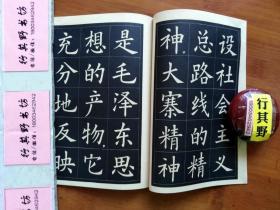 设社会主义
总路线的精
神。大寨精神
是毛泽东思
想的产物，它
充分地反映
行其野书坊
行其野书坊
行其野